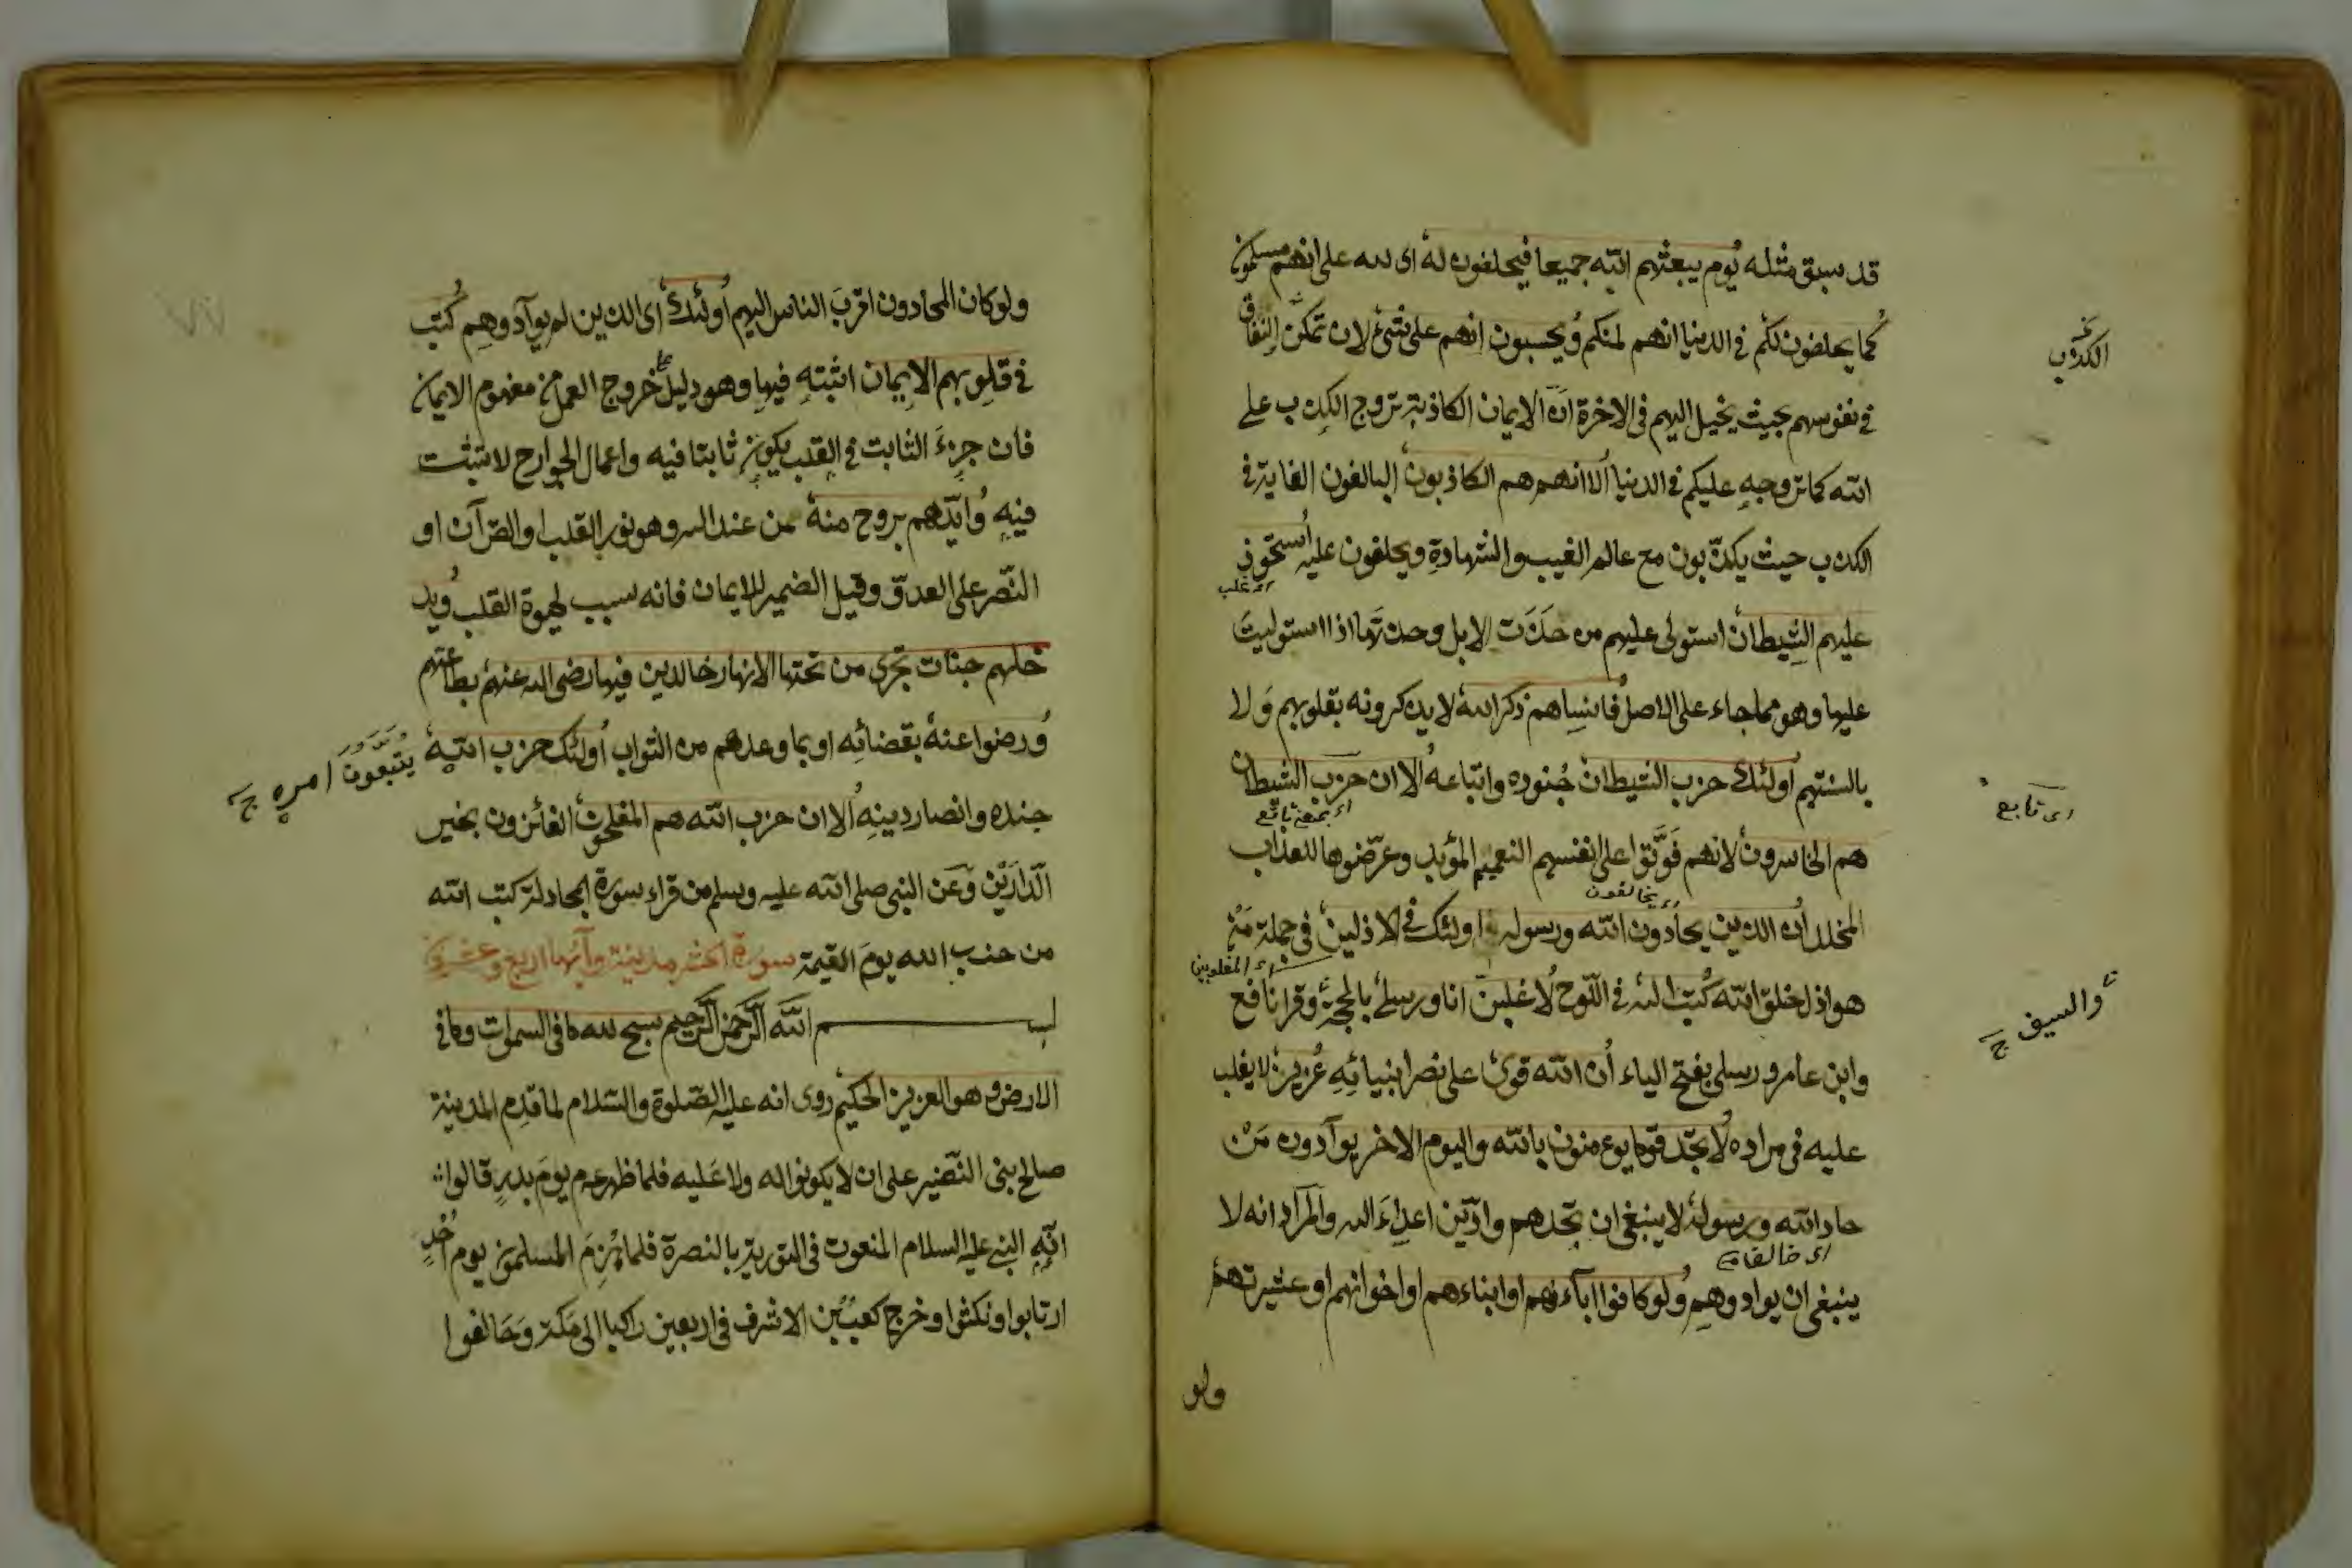 قد سبق مثله يوم يبعثهم الله جميعا فيحلفون له اى لله على انهم مسلمون
كما يحلفون لكم فى الدنيا انهم لمنكم ويحسبون انهم على شئ لان تمكن النفاق
فى نفوسهم بحيث يخيل اليهم فى الاخرة ان الايمان الكاذبة تروج الكذب على
الله كما تروجه عليكم فى الدنيا الا انهم هم الكاذبون البالغون الغاية فى
الكذب حيث يكذبون مع عالم الغيب والشهادة ويحلفون عليه استحوذ
اى غلب
عليهم الشيطان استولى عليهم من حذت الابل وحذتها اذا استوليت
عليها وهو مما جاء على الاصل فانسيهم ذكر الله لا يذكرونه بقلوبهم ولا
بالسنتهم اولئك حزب الشيطان جنوده واتباعه الا ان حزب الشيطان
هم الخاسرون لانهم فوتوا على انفسهم النعيم المؤبد وعرضوها للعذاب
اى يخالفون
المخلد ان الذين يحادون الله ورسوله اولئك فى الاذلين فى جملة من
اى المغلوبين
هو اذل خلق الله كتب الله فى اللوح لاغلبن انا ورسلى بالحجة وقرا نافع
وابن عامر ورسلى بفتح الياء ان الله قوى على نصر انبيائه عزيز لا يغلب
عليه فى مراده لا تجد قوما يؤمنون بالله واليوم الاخر يوآدون من
حاد الله ورسوله لا ينبغى ان تجدهم وادين اعداء الله والمراد انه لا
اى خالفا
ينبغى ان يوادوهم ولو كانوا اباءهم او ابناءهم او اخوانهم او عشيرتهم
ولو
الكذب
اى تابع
والسيف
ولو كان المحادون اقرب الناس اليهم اولئك اى الذين لم يوآدوهم كتب
فى قلوبهم الايمان اثبته فيها وهو دليل على خروج العمل من مفهوم الايمان
فان جزء الثابت فى القلب يكون ثابتا فيه واعمال الجوارح لا تثبت
فيه وايدهم بروح منه من عند الله وهو نور القلب او القرآن او
النصر على العدو وقيل الضمير للايمان فانه سبب لحيوة القلب ويد
خلهم جنات تجرى من تحتها الانهار خالدين فيها رضى الله عنهم بطاعتهم
ورضوا عنه بقضائه او بما وعدهم من الثواب اولئك حزب الله
يتبعون امره
جنده وانصار دينه الا ان حزب الله هم المفلحون الفائزون بخير
الدارين وعن النبى صلى الله عليه وسلم من قراء سورة المجادلة كتب الله
من حزب الله يوم القيمة سورة الحشر مدينة وآيها اربع وعشرون
بسم الله الرحمن الرحيم سبح لله ما فى السموات وما فى
الارض وهو العزيز الحكيم روى انه عليه الصلوة والسلام لما قدم المدينة
صالح بنى النضير على ان لا يكونوا له ولا عليه فلما ظهر عم يوم بدر قالوا
انه النبى عليه السلام المنعوت فى التورية بالنصرة فلما هزم المسلمون يوم احد
ارتابوا ونكثوا وخرج كعب بن الاشرف فى اربعين راكبا الى مكة وحالفوا